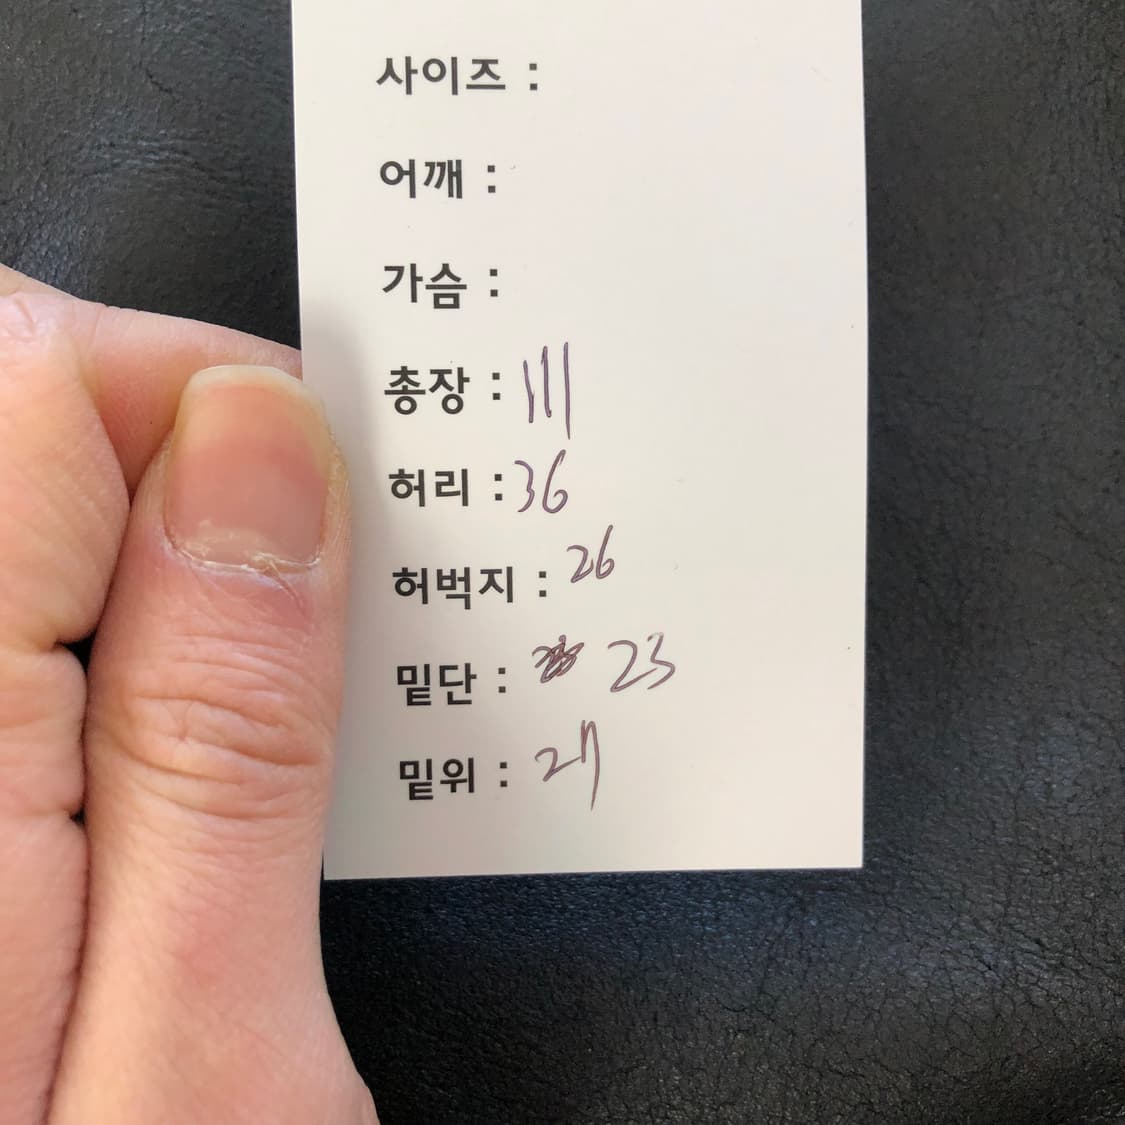 사이즈 :
어깨 :
가슴 :
총장 : 111
허리 : 36
허벅지 : 26
밑단 : 23
밑위 : 27